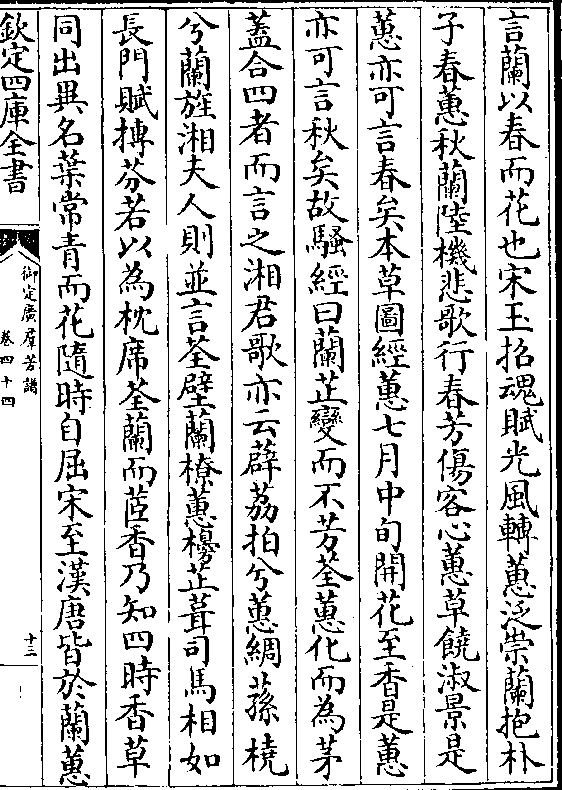 言蘭以春而花也宋玉招魂賦光風轉蕙泛崇蘭抱朴
子春蕙秋蘭陸機悲歌行春芳傷客心蕙草饒淑景是
蕙亦可言春矣本草圖經蕙七月中旬開花至香是蕙
亦可言秋矣故騷經曰蘭芷變而不芳荃蕙化而為茅
蓋合四者而言之湘君歌亦云薜荔拍兮蕙綢蓀橈
兮蘭旌湘夫人則並言荃壁蘭橑蕙櫋芷葺司馬相如
長門賦摶芬若以為枕席荃蘭而茝香乃知四時香草
同出異名葉常青而花隨時自屈宋至漢唐皆於蘭蕙
欽定四庫全書
御定廣羣芳譜
卷四十四
十三